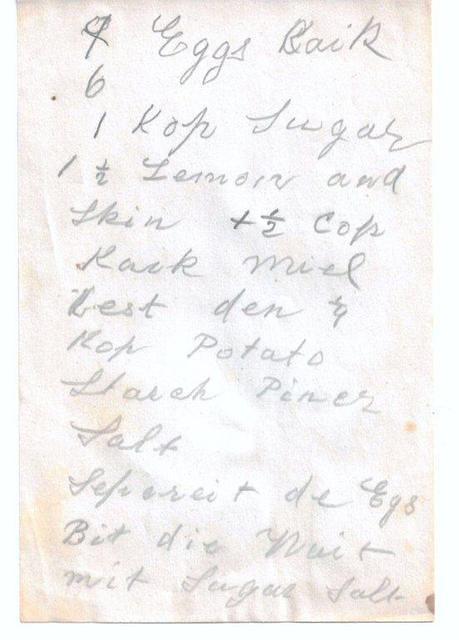 9 Eggs Kaik
6
1 Kop Sugar
1 ½ Lemon and
Skin + ½ Cop
Kaik Miel
Lest den ¼
Kop Potato
Starch Pincz
Salt
Sepereit de Egs
Bit die Wait
mit Sugar Salt